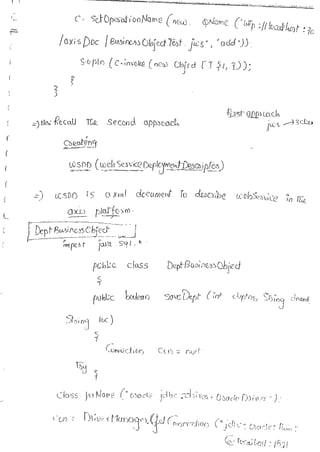 c. SetOperationName (new QName ("http://localhost : 80
/axis Doc / Business Object Test. jws", "add"));
Sopln (c.invoke (new Object [ ] {1, 2}));
}
}
First approach
jws → 3 class
=) Now Recall The second approach
Creating
WSDD (web Service Deployment Descriptor)
=) WSDD is a xml document To describe webService in the
axis platform.
Dept Business Object
import java sql. *
public class Dept Business Object
{
public boolean saveDept (int deptno, String dname
String loc)
{
Connection con = null
Try {
Class. forName ("oracle jdbc driver. Oracle Driver");
con = DriverManager. Get Connection ("jdbc: oracle: thin:
@localhost : 1521